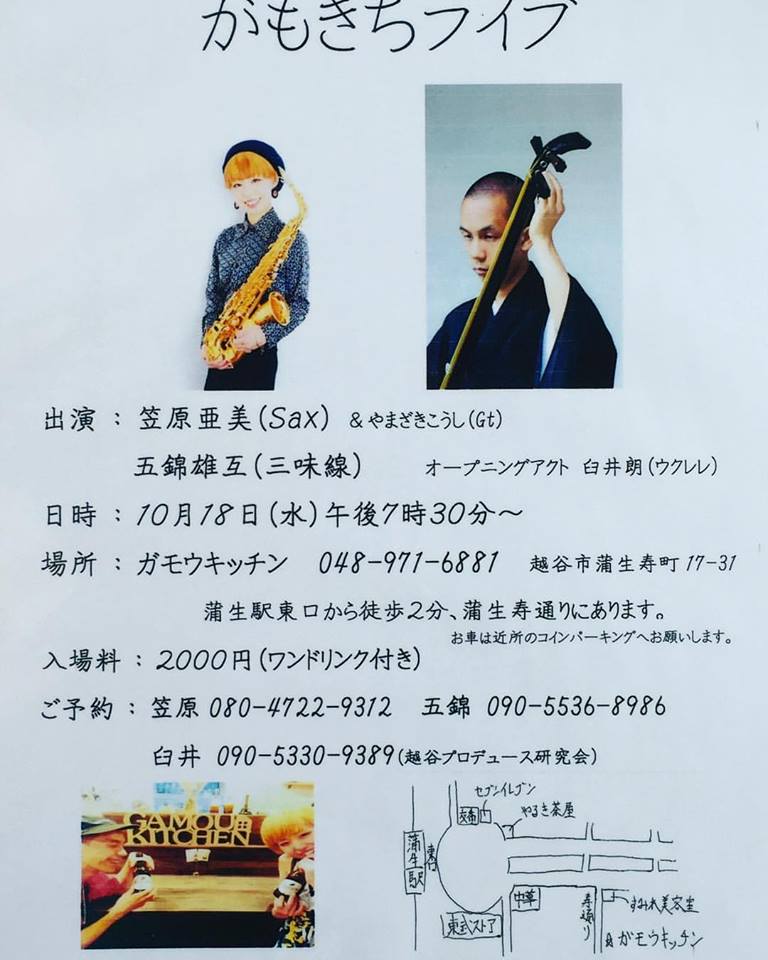 がもきちライブ
出演 : 笠原亜美(Sax) &やまざきこうし(Gt)
五錦雄互(三味線) オープニングアクト 臼井朗(ウクレレ)
日時 : 10月18日(水)午後7時30分〜
場所 : ガモウキッチン 048-971-6881 越谷市蒲生寿町17-31
蒲生駅東口から徒歩2分、蒲生寿通りにあります。
お車は近所のコインパーキングへお願いします。
入場料 : 2000円(ワンドリンク付き)
ご予約 : 笠原 080-4722-9312 五錦 090-5536-8986
臼井 090-5330-9389(越谷プロデュース研究会)
GAMOU
KITCHEN
セブンイレブン
交番
やるき茶屋
蒲生駅
東口
中華
寿通り
すみれ美容室
東武ストア
ガモウキッチン